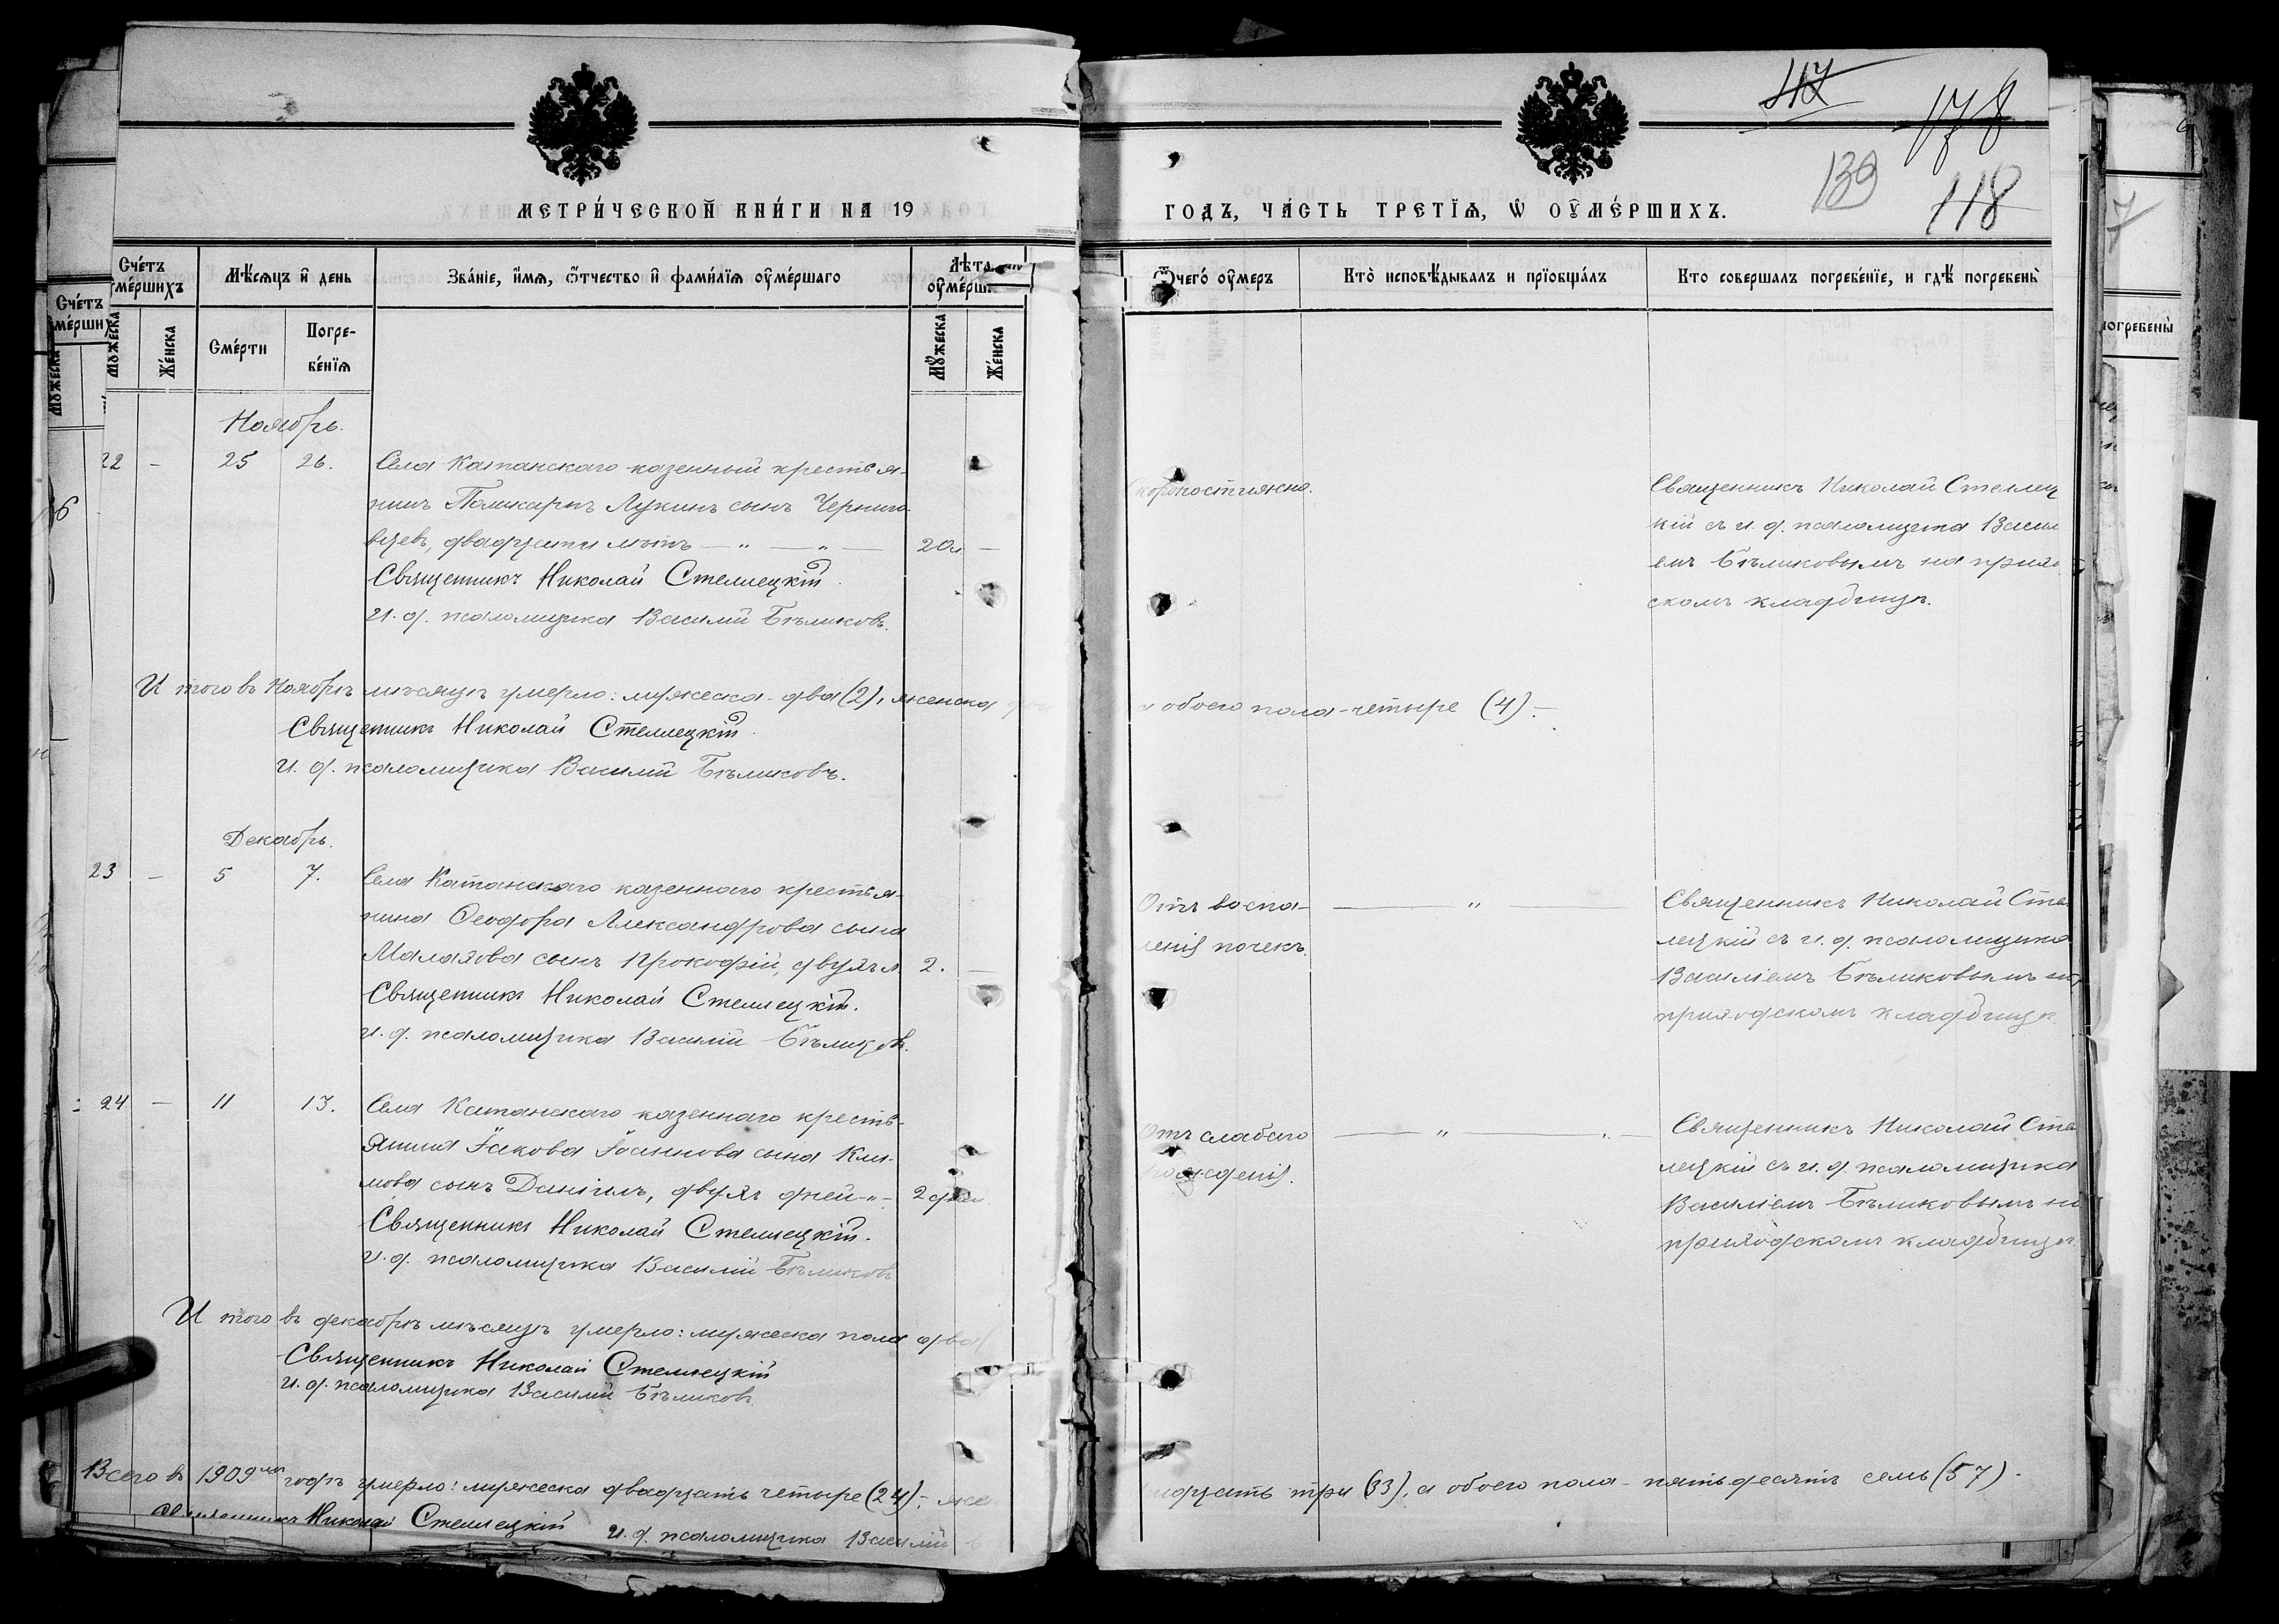 МЕТРИ́ЧЕСКОЙ КНИ́ГИ НА 19
ГОДЪ, ЧА́СТЬ ТРЕТЇѦ, Ѡ҆ ОУ҆МЕ́РШИХЪ.
117
178
139
118
Сче́тъ
оумершихъ
Мѣ́сяцъ и҆ день
Зва́ніе, и҆́мѧ, ѻ҆́тчество и҆ фами́лїѧ оу҆ме́ршаго
Лѣта
оу҆ме́рш.
Мꙋжеска
Же́нска
Сме́рти
Погре-
бе́нїѧ
Мꙋ́жеска
Же́нска
Ѿчегѡ̀ оу҆меръ
Кто̀ исповѣ́дывалъ и прїобща́лъ
Кто совершалъ погребе́ніе, и гдѣ̀ погребены̀
Ноябрь.
22 — 25 26. Села Катанскаго казенный крестья-
нинъ Поликарпъ Лукинъ сынъ Чернико-
вцевъ, двадцати лѣтъ — „ — „ — 20л —
Священникъ Николай Стеллецкій
И. д. псаломщика Василій Бѣликовъ.
Скоропостижно.
Священникъ Николай Стеллец
кій съ и. д. псаломщика Васил
емъ Бѣликовымъ на прихо
скомъ кладбищѣ.
И того въ Ноябрѣ мѣсяцѣ умерло: мужеска - два (2), женска
а обоего пола - четыре (4). —
Священникъ Николай Стеллецкій
И. д. псаломщика Василій Бѣликовъ.
Декабрь.
23 — 5 7. Села Катанскаго казеннаго крестья-
нина Ѳеодора Александрова сына
Малахова сынъ Прокофій, двухъ л. 2. —
Священникъ Николай Стеллецкій.
и. д. псаломщика Василій Бѣликовъ.
Отъ воспа- — „ —
ленія почекъ.
Священникъ Николай Сте
лецкій съ и. д. псаломщика
Василіемъ Бѣликовымъ на
приходскомъ кладбищѣ
24 — 11 13. Села Катанскаго казеннаго кресть-
янина Іакова Іоаннова сына Кли-
мова сынъ Даніилъ, двухъ дней — „ — 2 дня
Священникъ Николай Стеллецкій.
и. д. псаломщика Василій Бѣликовъ
Отъ слабаго — „ —
рожденія.
Священникъ Николай Сте
лецкій съ и. д. псаломщика
Василіемъ Бѣликовымъ на
приходскомъ кладбищѣ
И того въ декабрѣ мѣсяцѣ умерло: мужеска пола два
Священникъ Николай Стеллецкій
И. д. псаломщика Василій Бѣликовъ
Всего въ 1909мъ годѣ умерло: мужеска двадцать четыре (24); — же
идцать три (33), а обоего пола - пятьдесятъ семь (57).
Священникъ Николай Стеллецкій и. д. псаломщика Василій